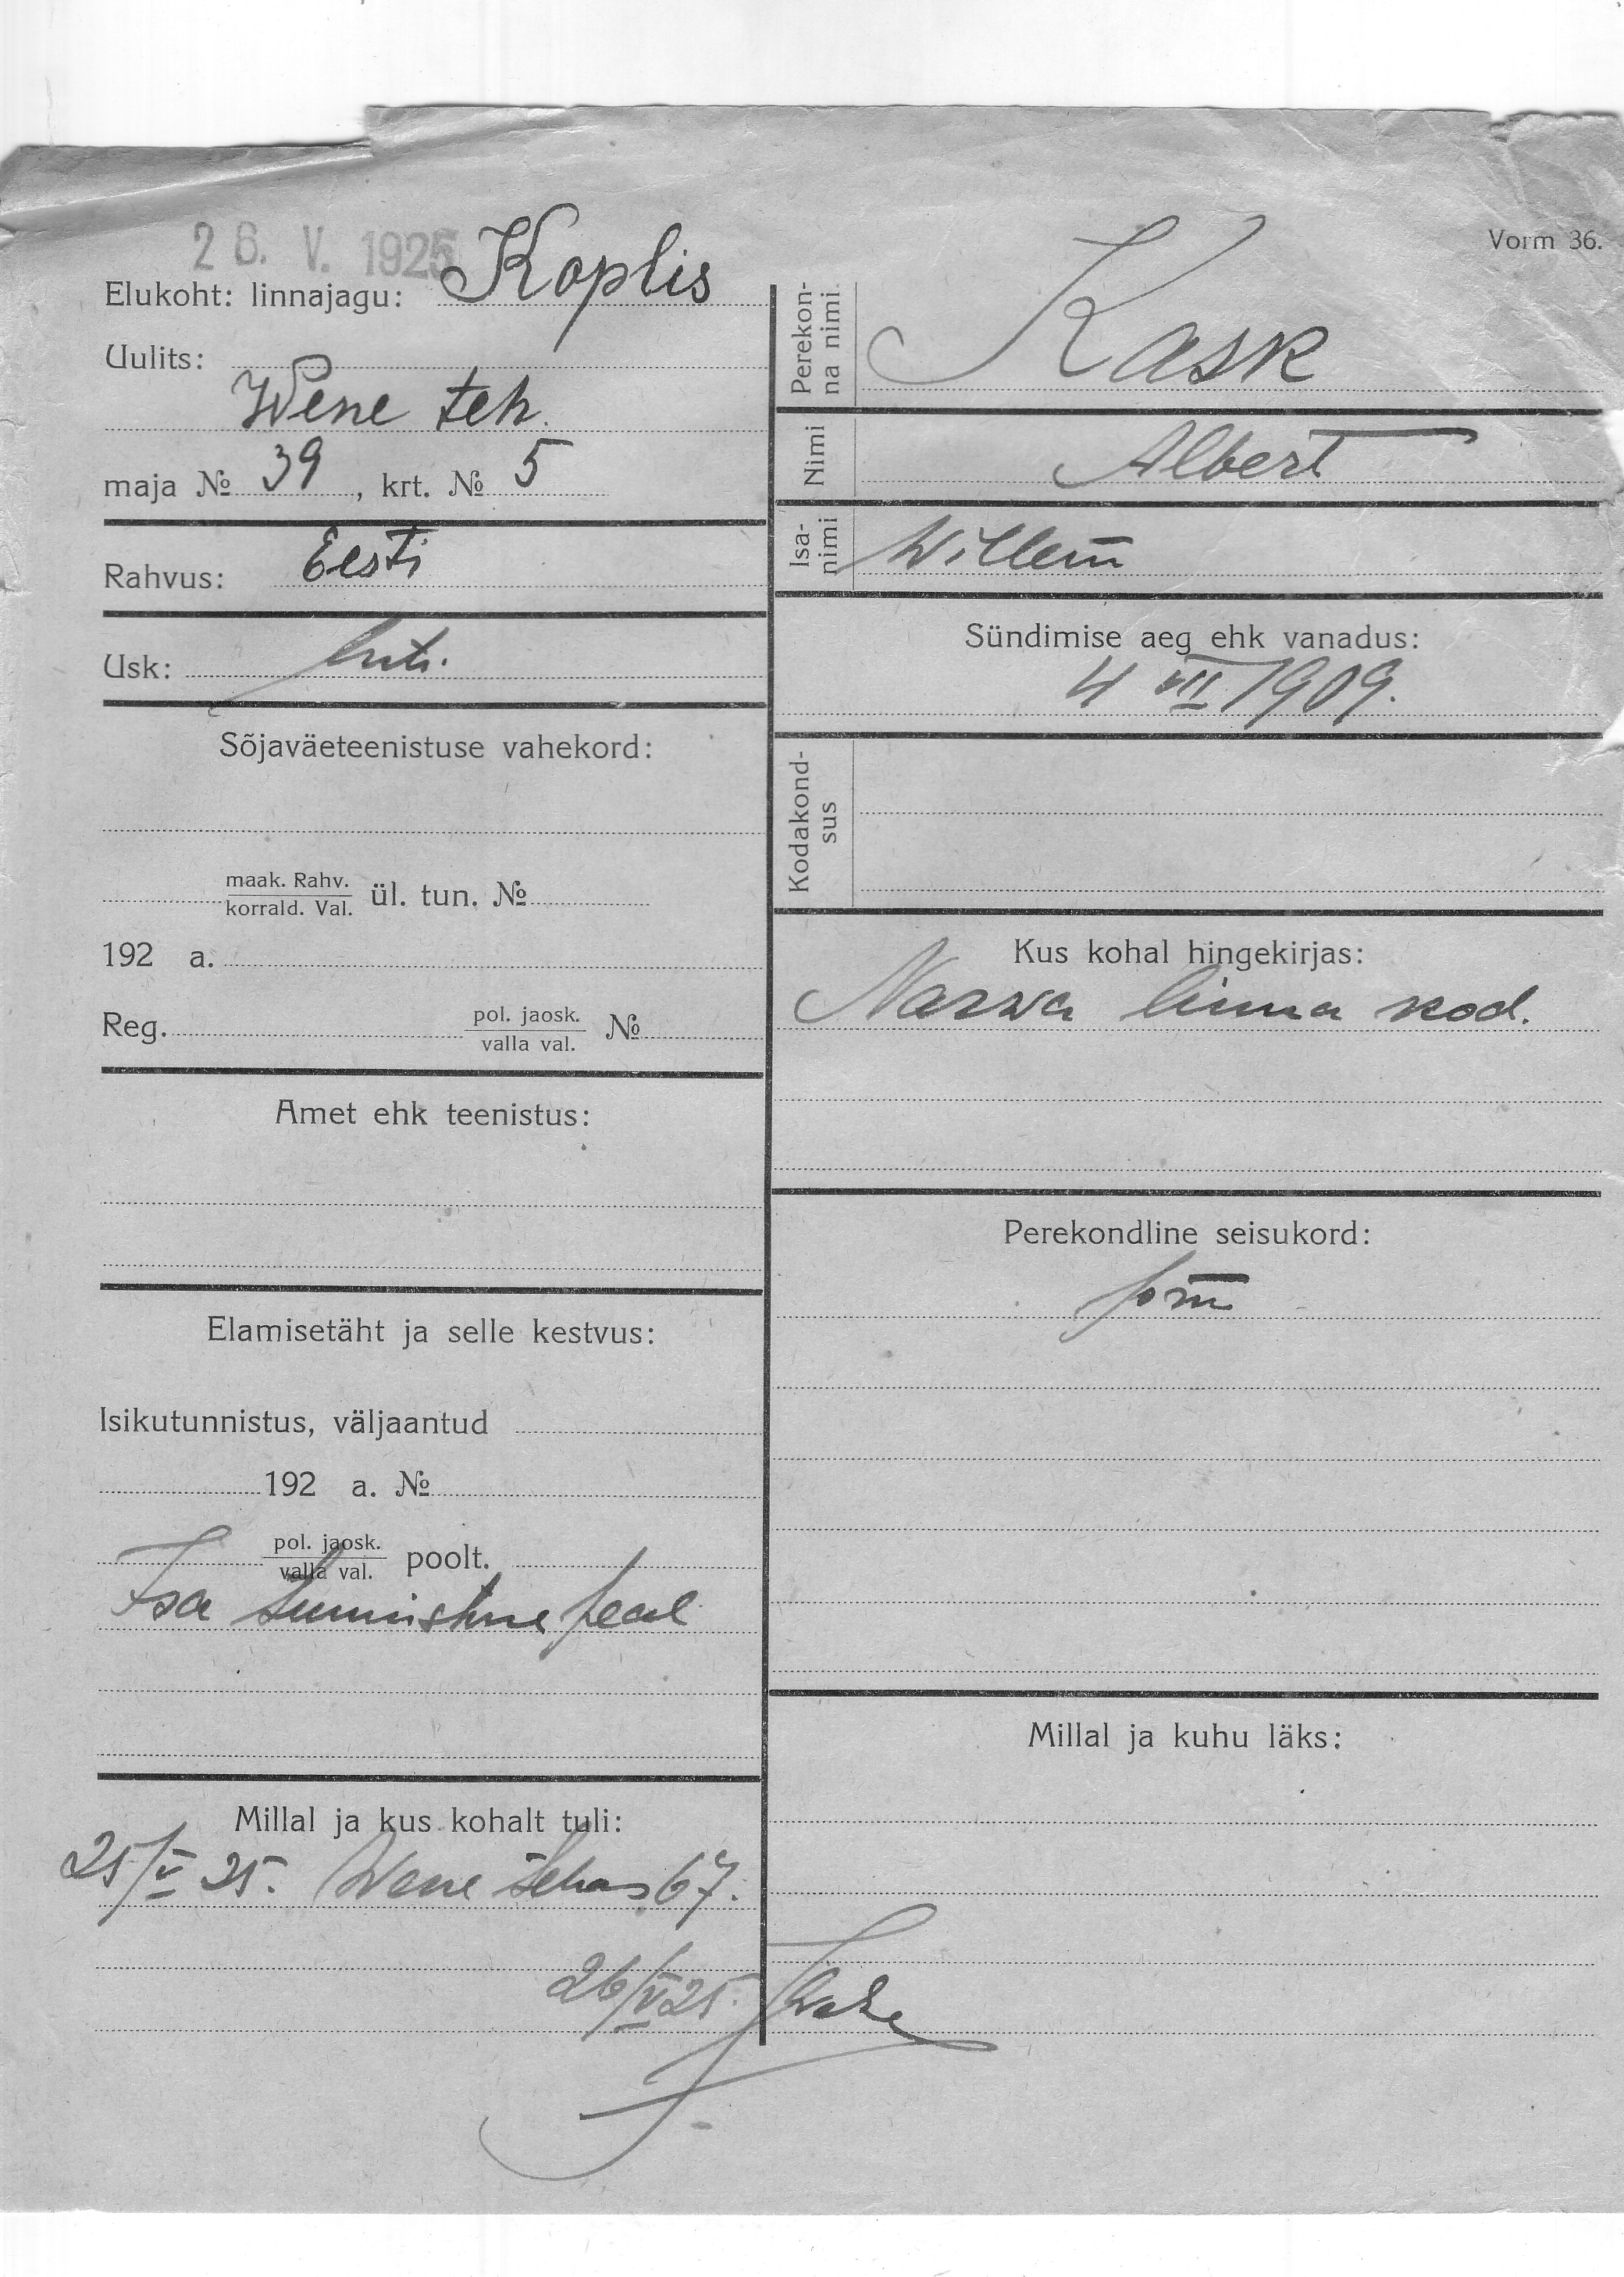 26. V. 1925
Elukoht: linnajagu: Koplis
Uulits:
Wene teh.
maja № 39, krt. № 5
Rahvus: Eesti
Usk: lut.
Sõjaväeteenistuse vahekord:
maak. Rahv.
korrald. Val. ül. tun. №
192 a.
Reg. pol. jaosk.
valla val. №
Amet ehk teenistus:
Elamisetäht ja selle kestvus:
Isikutunnistus, väljaantud
192 a. №
pol. jaosk.
valla val. poolt.
Isa tunnistuse peal
Millal ja kus kohalt tuli:
25/V 25. Wene tehas 67.
26/V 25.
Vorm 36.
Perekon-
na nimi Kask
Nimi Albert
Isa-
nimi Willem
Sündimise aeg ehk vanadus:
4 VII 1909.
Kodakond-
sus
Kus kohal hingekirjas:
Narwa linna kod.
Perekondline seisukord:
Millal ja kuhu läks: